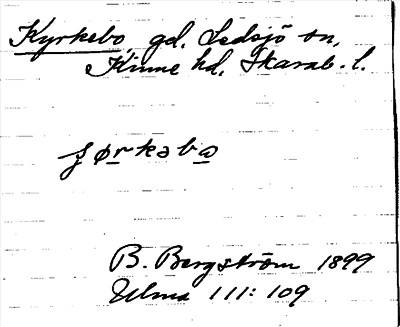 Kyrkebo, gd, Ledsjö sn,
Kinne hd, Skarab. l.
ʒørkəbo
B. Bergström 1899
Ulma 111: 109